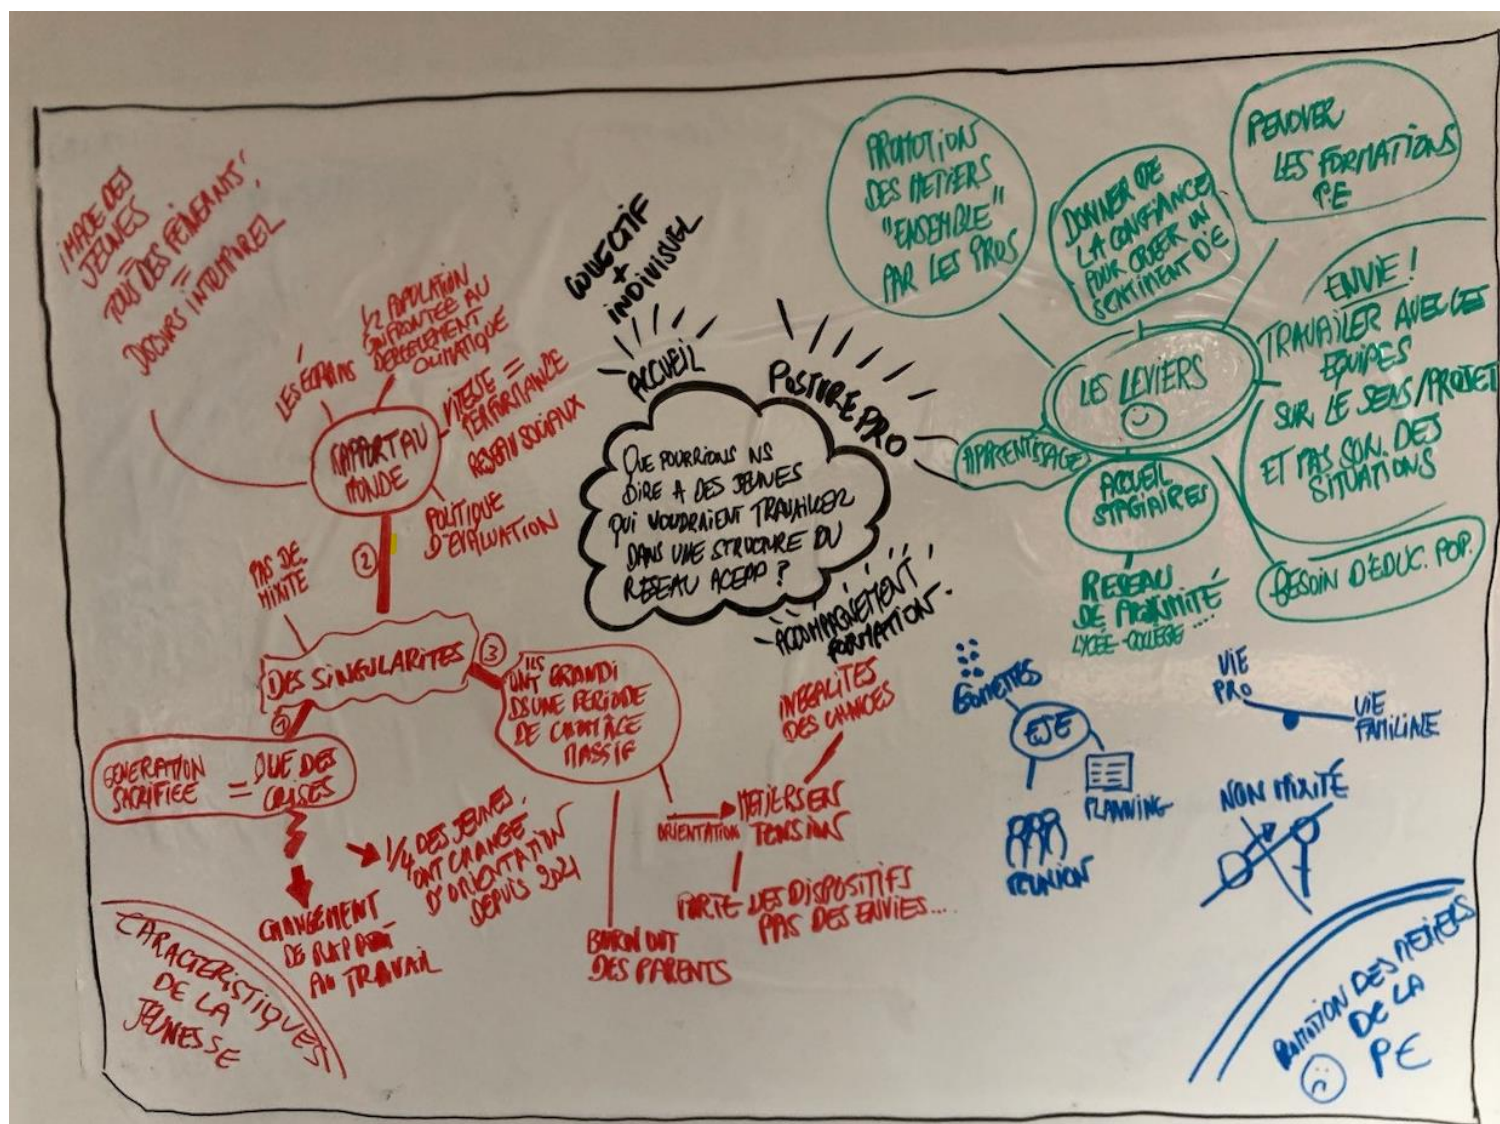 IMAGE DES
JEUNES
=
TOUS DES FÉNÉANTS!
=
DISCOURS INTEMPOREL
LES ÉCRANS
1/2 POPULATION
CONFRONTÉE AU
DEREGLEMENT
CLIMATIQUE
VITESSE =
PERFORMANCE
RESEAU SOCIAUX
RAPPORT AU
MONDE
POLITIQUE
D'EVALUATION
2
PAS DE
MIXITE
DES SINGULARITES
3
ILS
ONT GRANDI
DS UNE PERIODE
DE CHOMÂGE
MASSIF
1
GENERATION
SACRIFIEE
= QUE DES
CRISES
1/4 DES JEUNES
ONT CHANGE
D'ORIENTATION
DEPUIS 2021
CHANGEMENT
DE RAPPORT
AU TRAVAIL
BURN OUT
DES PARENTS
ORIENTATION
METIERS EN
TENSION
INEGALITES
DES CHANCES
PORTE DES DISPOSITIFS
PAS DES ENVIES...
CARACTERISTIQUES
DE LA
JEUNESSE
COLLECTIF
+
INDIVISUEL
ACCUEIL
POSTURE PRO
QUE POURRIONS NS
DIRE A DES JEUNES
QUI VOUDRAIENT TRAVAILLER
DANS UNE STRUCTURE DU
RESEAU ACEPP ?
ACCOMPAGNEMENT
FORMATION
PROMOTION
DES METIERS
"ENSEMBLE"
PAR LES PROS
DONNER DE
LA CONFIANCE
POUR CREER UN
SENTIMENT D'E
RENOVER
LES FORMATIONS
PE
LES LEVIERS
APPRENTISSAGE
ACCUEIL
STAGIAIRES
RESEAU
DE PROXIMITÉ
LYCÉE-COLLÈGE ....
ENVIE !
TRAVAILLER AVEC LES
EQUIPES
SUR LE SENS/PROJET
ET PAS SON DES
SITUATIONS
BESOIN D'EDUC. POP.
GOMETTES
EJE
PLANNING
REUNION
VIE
PRO
VIE
FAMILIALE
NON MIXITÉ
PROMOTION DES METIERS
DE LA
PE